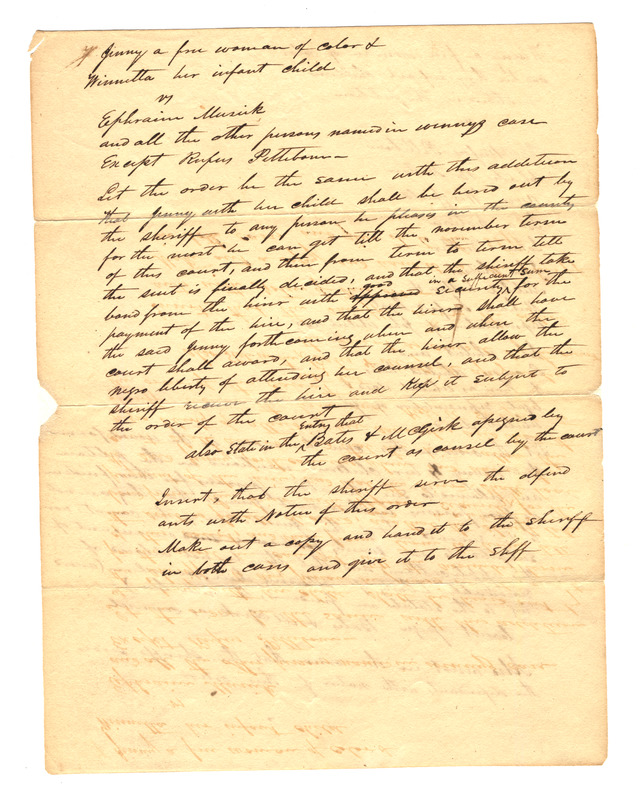 Jinny a free woman of color &
Winnetta her infant child
vs
Ephraim Musick
and all the other persons named in winnys case
Except Rufus Pettibone –
Let the order be the same with this addition
that Jinny with her child shall be hired out by
the sheriff to any person he pleases in the county
for the most he can get till the november term
of this court, and then from term to term till
the suit is finally decided, and that the sheriff take
bond from the hirer with approved good security in a sufficient sum for the
payment of the hire, and that the hirer shall have
the said Jinny forthcoming when and where the
court shall award, and that the hirer allow the
negro liberty of attending her counsel, and that the
sheriff receive the hire and keep it subject to
the order of the court
also State in the Entry that Bates & McGirk assigned by
the court as counsel by the court
Insert, that the sheriff serve the defend
ants with Notice of this order
Make out a copy and hand it to the sheriff
in both cases and give it to the Shff